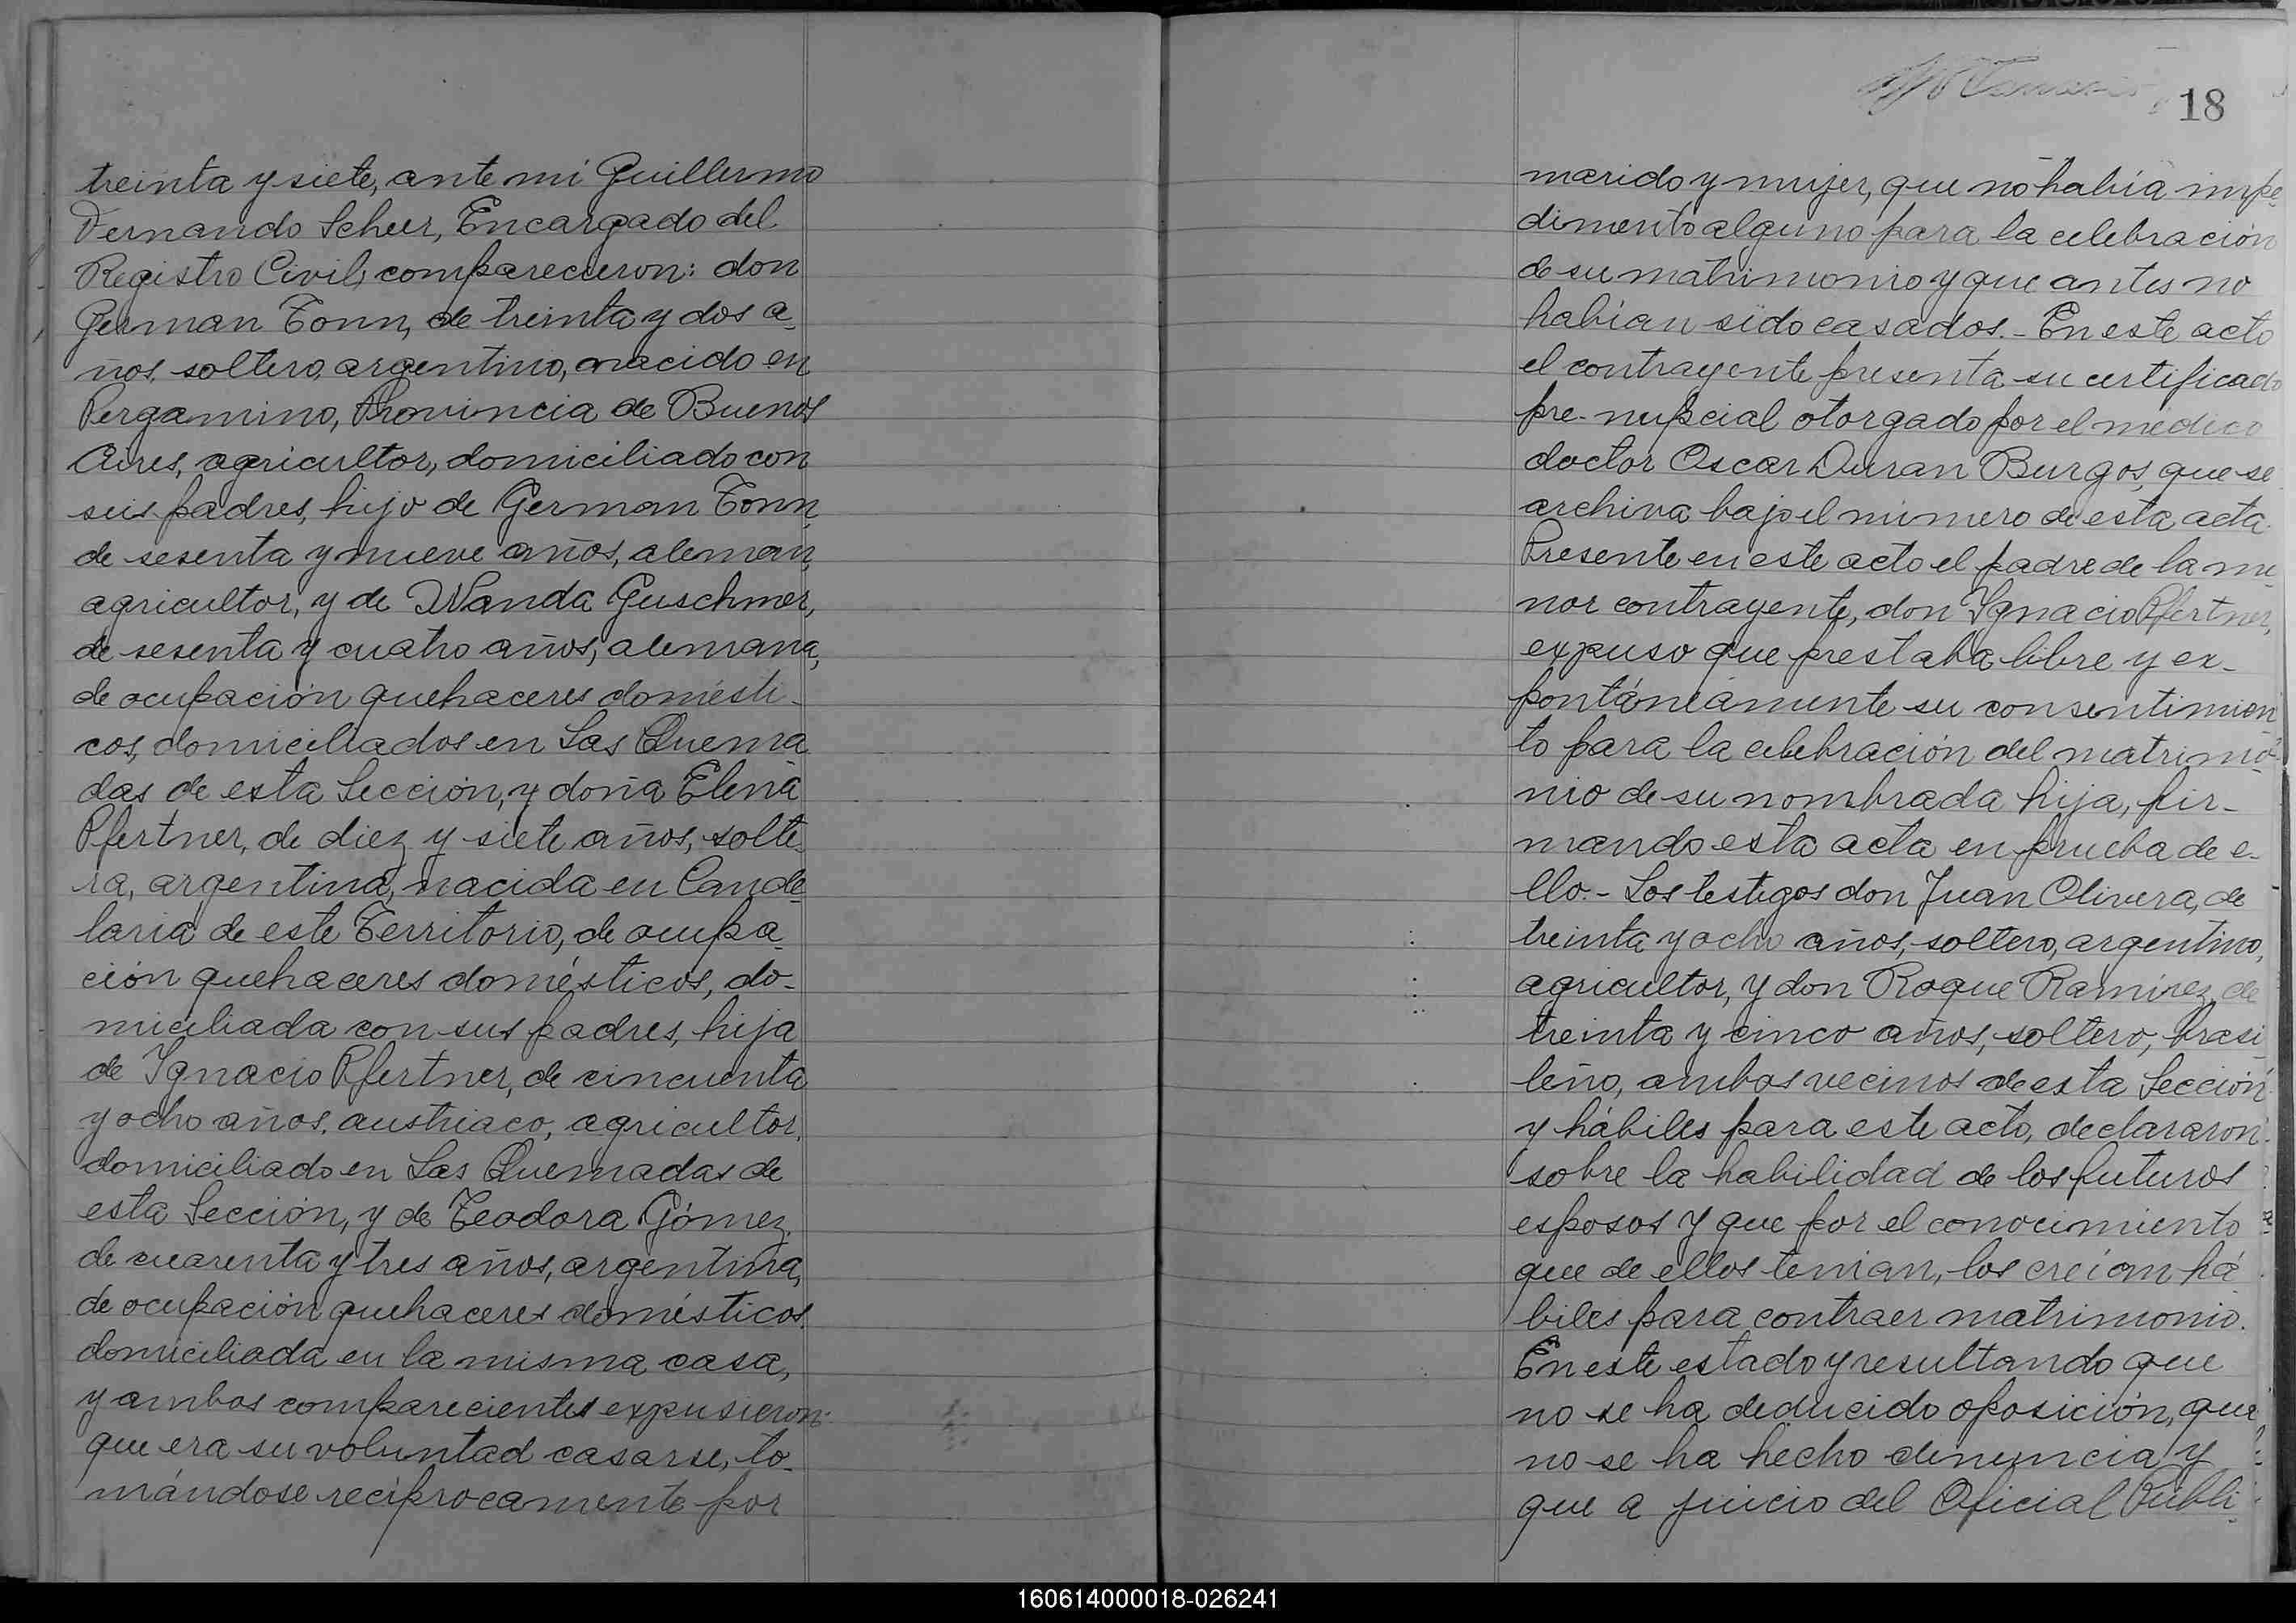 treinta y siete, ante mi Guillermo
Fernando Scheer, Encargado del
Registro Civil, comparecieron: don
German Tonn, de treinta y dos a-
ños, soltero, argentino, nacido en
Pergamino, Provincia de Buenos
Aires, agricultor, domiciliado con
sus padres, hijo de German Tonn,
de sesenta y nueve años, aleman,
agricultor, y de Wanda Guschmer,
de sesenta y cuatro años, alemana,
de ocupación quehaceres domésti-
cos, domiciliados en Las Quema
das de esta Sección, y doña Elena
Pfertner, de diez y siete años, solte-
ra, argentina, nacida en Cande-
laria de este Territorio, de ocupa-
ción quehaceres domésticos, do-
miciliada con sus padres, hija
de Ignacio Pfertner, de cincuenta
y ocho años, austriaco, agricultor,
domiciliado en Las Quemadas de
esta Sección, y de Teodora Gómez,
de cuarenta y tres años, argentina,
de ocupación quehaceres domésticos,
domiciliada en la misma casa,
y ambos comparecientes expusieron:
que era su voluntad casarse, to-
mándose recíprocamente por
18
marido y mujer, que no había impe-
dimento alguno para la celebración
de su matrimonio y que antes no
habían sido casados.- En este acto
el contrayente presenta su certificado
pre-nupcial otorgado por el médico
doctor Oscar Duran Burgos, que se
archiva bajo el número de esta acta.
Presente en este acto el padre de la me
nor contrayente, don Ignacio Pfertner,
expuso que prestaba libre y ex-
pontáneamente su consentimien
to para la celebración del matrimo-
nio de su nombrada hija, fir-
mando esta acta en prueba de e-
llo.- Los testigos don Juan Olivera, de
treinta y ocho años, soltero, argentino,
agricultor, y don Roque Ramirez, de
treinta y cinco años, soltero, brasi
leño, ambos vecinos de esta Sección
y hábiles para este acto, declararon
sobre la habilidad de los futuros
esposos y que por el conocimiento
que de ellos tenían, los creían há
biles para contraer matrimonio.
En este estado y resultando que
no se ha deducido oposición, que
no se ha hecho denuncia y
que a juicio del Oficial Públi-
160614000018-026241